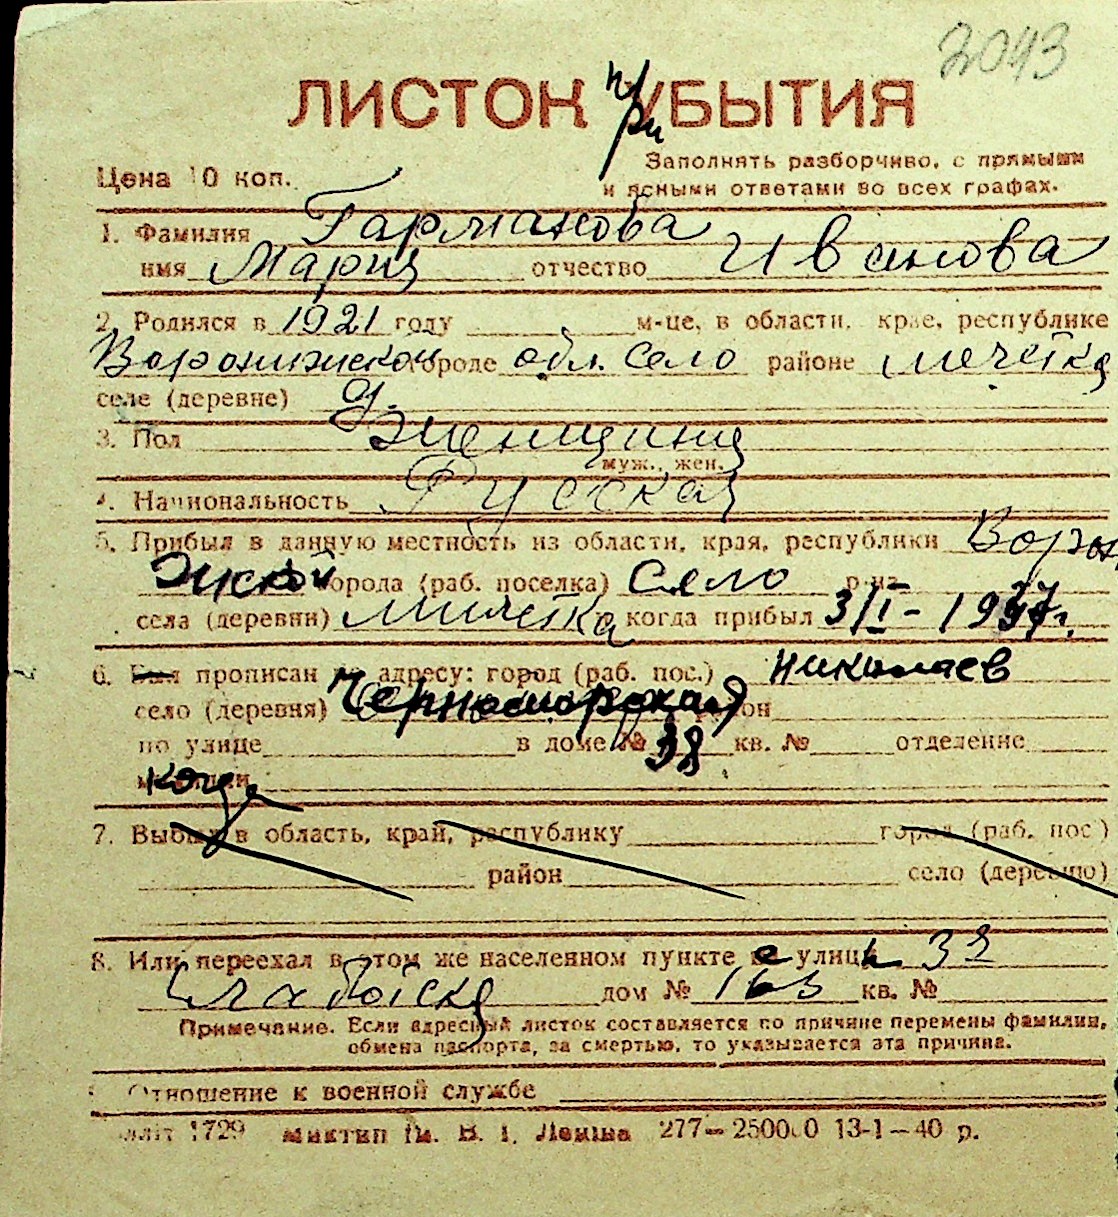 2043
ЛИСТОК при УБЫТИЯ
Цена 10 коп.
Заполнять разборчиво, с прямыми
и ясными ответами во всех графах.
1. Фамилия Гарманова
имя Мария отчество Иванова
2. Родился в 1921 году м-це, в области, крае, республике
Воронижской городе обл. село районе мечетка
селе (деревне)
3. Пол Женщина
муж., жен.
4. Национальность Русская
5. Прибыл в данную местность из области, края, республики Ворон
жской города (раб. поселка) село р-на
села (деревни) мичетка когда прибыл 3/I-1937г.
6. Был прописан по адресу: город (раб. пос.) Николаев
село (деревня) Черноморская район
по улице в доме № 38 кв. № отделение
милиции когда
7. Выбыл в область, край, республику город (раб. пос)
район село (деревню)
8. Или переехал в этом же населенном пункте с улицы 32
дом № 163 кв. №
Примечание. Если адресный листок составляется по причине перемены фамилии,
обмена паспорта, за смертью, то указывается эта причина.
Отношение к военной службе
1729 Ім. В. І. Леніна 277—250000 13-1—40 р.